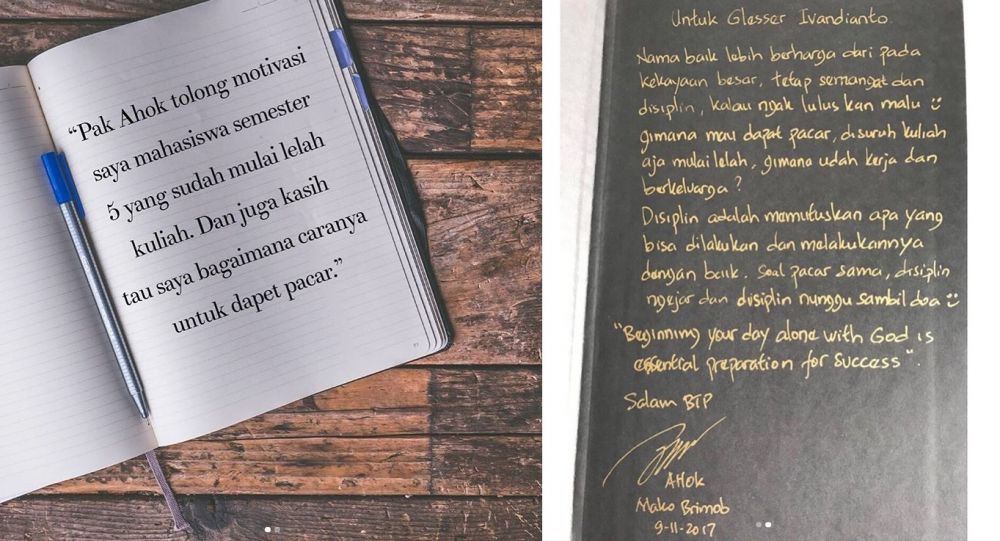 “Pak Ahok tolong motivasi
saya mahasiswa semester
5 yang sudah mulai lelah
kuliah. Dan juga kasih
tau saya bagaimana caranya
untuk dapet pacar.”
Untuk Glesser Ivandianto
Nama baik lebih berharga dari pada
kekayaan besar, tetap semangat dan
disiplin, kalau ngak lulus kan malu
gimana mau dapat pacar, disuruh kuliah
aja mulai lelah, gimana udah kerja dan
berkeluarga?
Disiplin adalah memutuskan apa yang
bisa dilakukan dan melakukannya
dengan baik. Soal pacar sama, disiplin
ngejar dan disiplin nunggu sambil doa
"Beginning your day alone with God is
essential preparation for success".
Salam BTP
AHok
Mako Brimob
9-11-2017